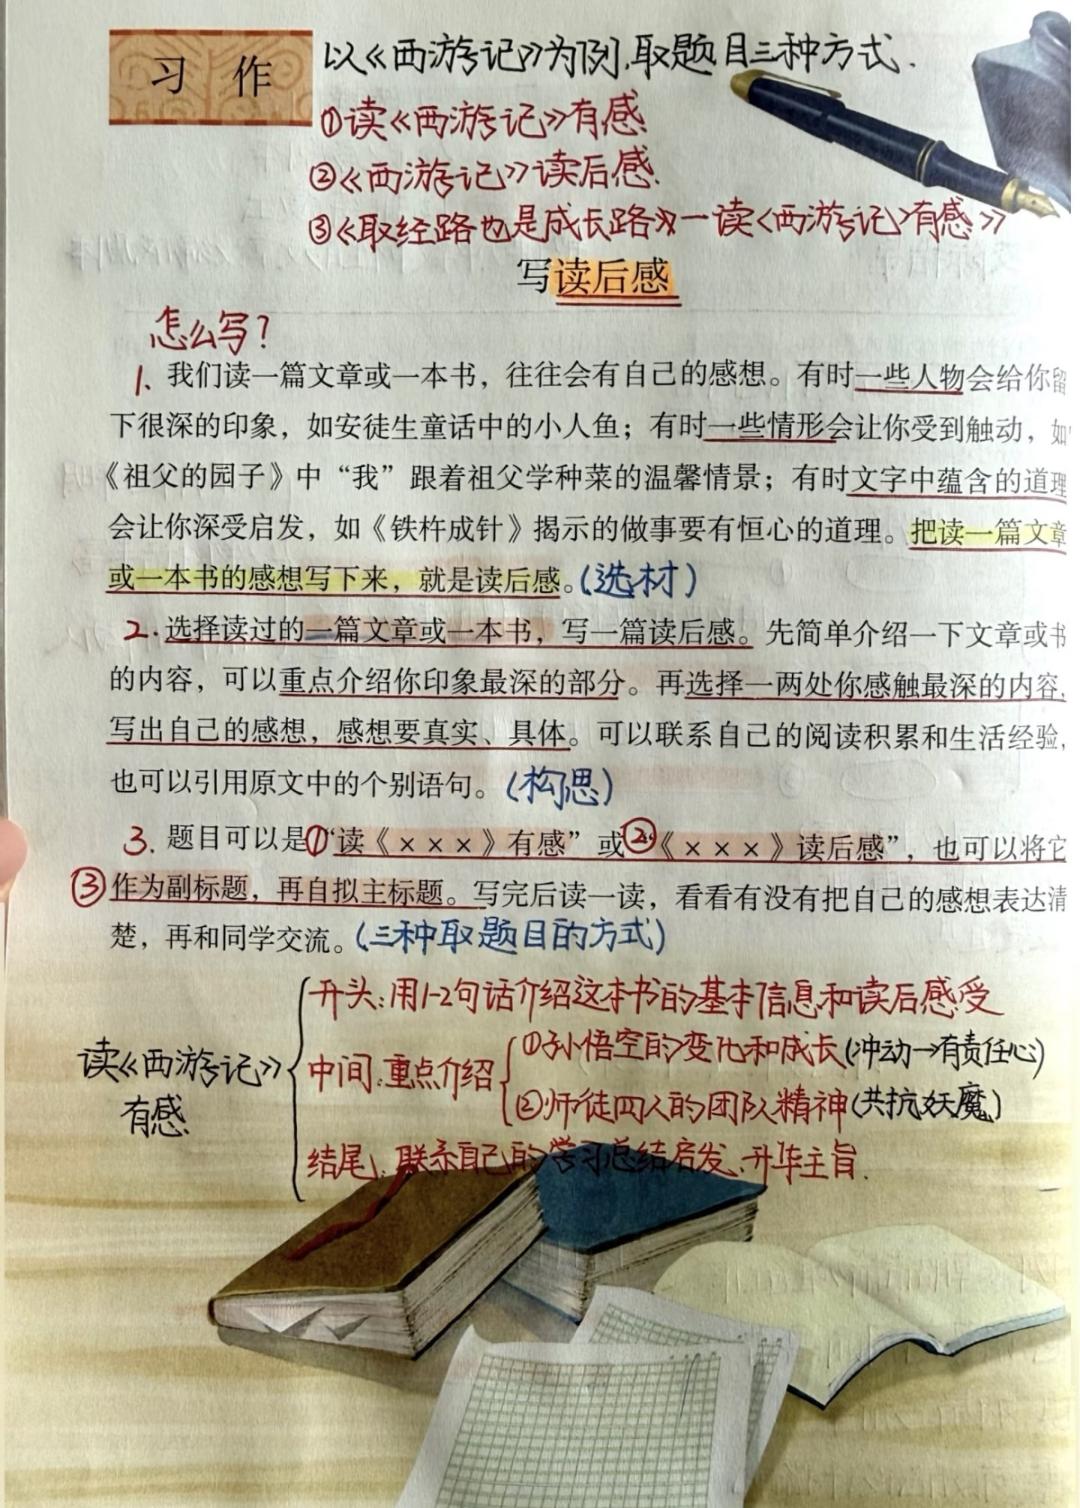 习作
以《西游记》为例,取题目三种方式.
①读《西游记》有感
②《西游记》读后感.
③《取经路也是成长路》—读《西游记》有感》
写读后感
怎么写?
1、我们读一篇文章或一本书，往往会有自己的感想。有时一些人物会给你留
下很深的印象，如安徒生童话中的小人鱼；有时一些情形会让你受到触动，如
《祖父的园子》中“我”跟着祖父学种菜的温馨情景；有时文字中蕴含的道理
会让你深受启发，如《铁杵成针》揭示的做事要有恒心的道理。把读一篇文章
或一本书的感想写下来，就是读后感。(选材)
2.选择读过的一篇文章或一本书，写一篇读后感。先简单介绍一下文章或书
的内容，可以重点介绍你印象最深的部分。再选择一两处你感触最深的内容，
写出自己的感想，感想要真实、具体。可以联系自己的阅读积累和生活经验，
也可以引用原文中的个别语句。(构思)
3.题目可以是①“读《×××》有感”或②“《×××》读后感”，也可以将它
③作为副标题，再自拟主标题。写完后读一读，看看有没有把自己的感想表达清
楚，再和同学交流。(三种取题目的方式)
读《西游记》有感
开头:用1-2句话介绍这本书的基本信息和读后感受
中间:重点介绍
①孙悟空的变化和成长(冲动→有责任心)
②师徒四人的团队精神(共抗妖魔)
结尾:联系自己的学习总结启发、升华主旨.